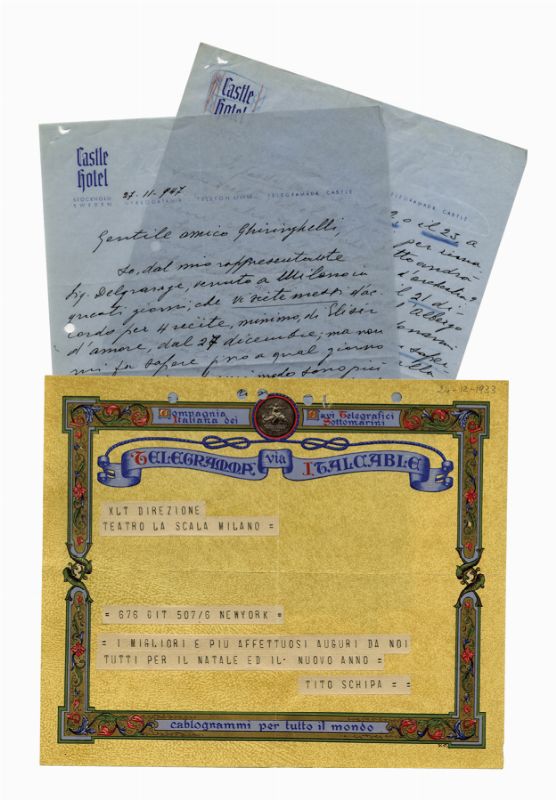 Castle
Hotel
Castle
Hotel
STOCKHOLM
SWEDEN
TELEGRAMADR. CASTLE
TELEGRAMADR. CASTLE
27-11-947
Gentile amico Ghiringhelli,
So, dal mio rappresentante
Sig. Delgrange, venuto a Milano in
questi giorni, che vi siete messi d'ac-
cordo per 4 recite, minimo, di Elisir
d'amore, dal 27 dicembre; ma non
mi fa sapere fino a qual giorno
20 il 23 a
d'orchestra
il 21 di
Albergo
sapere
24-12-1933
Compagnia
Italiana dei
Cavi Telegrafici
Sottomarini
TELEGRAMMA via ITALCABLE
XLT DIREZIONE
TEATRO LA SCALA MILANO =
= 676 GIT 507/6 NEWYORK =
= I MIGLIORI E PIU AFFETTUOSI AUGURI DA NOI
TUTTI PER IL NATALE ED IL NUOVO ANNO =
TITO SCHIPA = =
cablogrammi per tutto il mondo